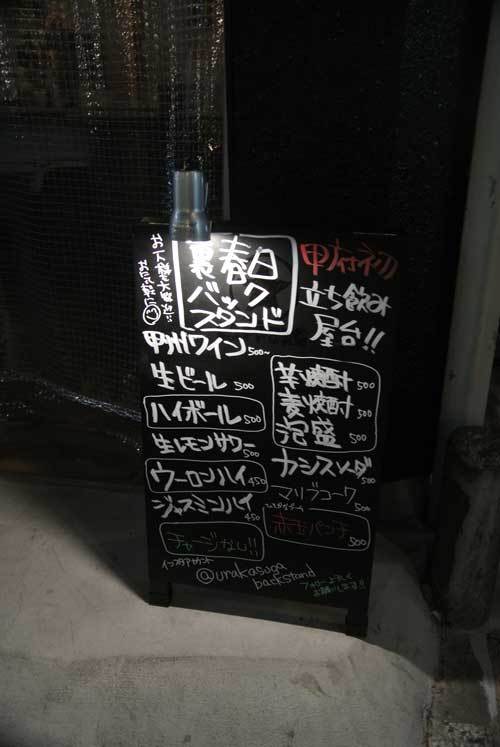 甲府初
立ち飲み
屋台!!
裏春日
バック
スタンド
お一人様も大歓迎!!
甲州ワイン 500~
生ビール 500
ハイボール 500
生レモンサワー 500
ウーロンハイ 450
ジャスミンハイ 450
チャージなし!!
芋焼酎 500
麦焼酎 500
泡盛 500
カシスソーダ 500
マリブコーク 500
赤玉パンチ 500
インスタアカウント
@urakasuga
backstand
フォローよろしく
お願いします!!